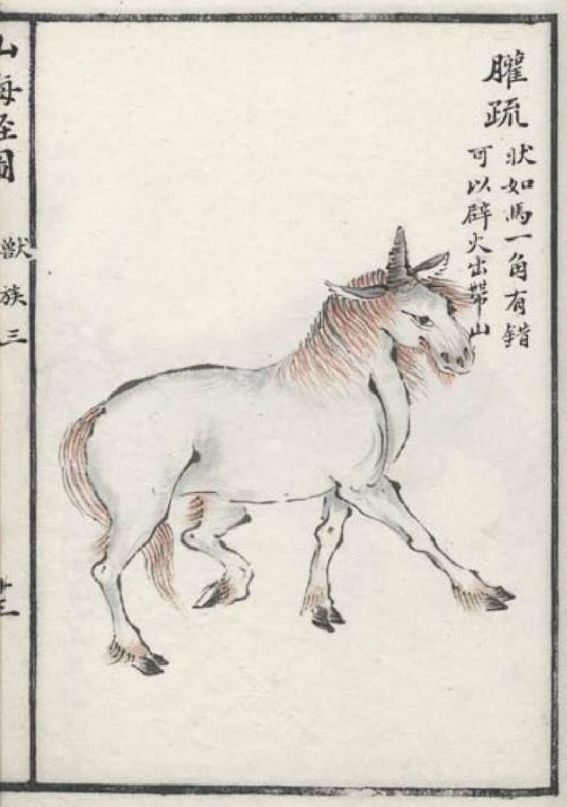 䑏疏
狀如馬一角有錯
可以辟火出帶山
山海經圖
獸族三